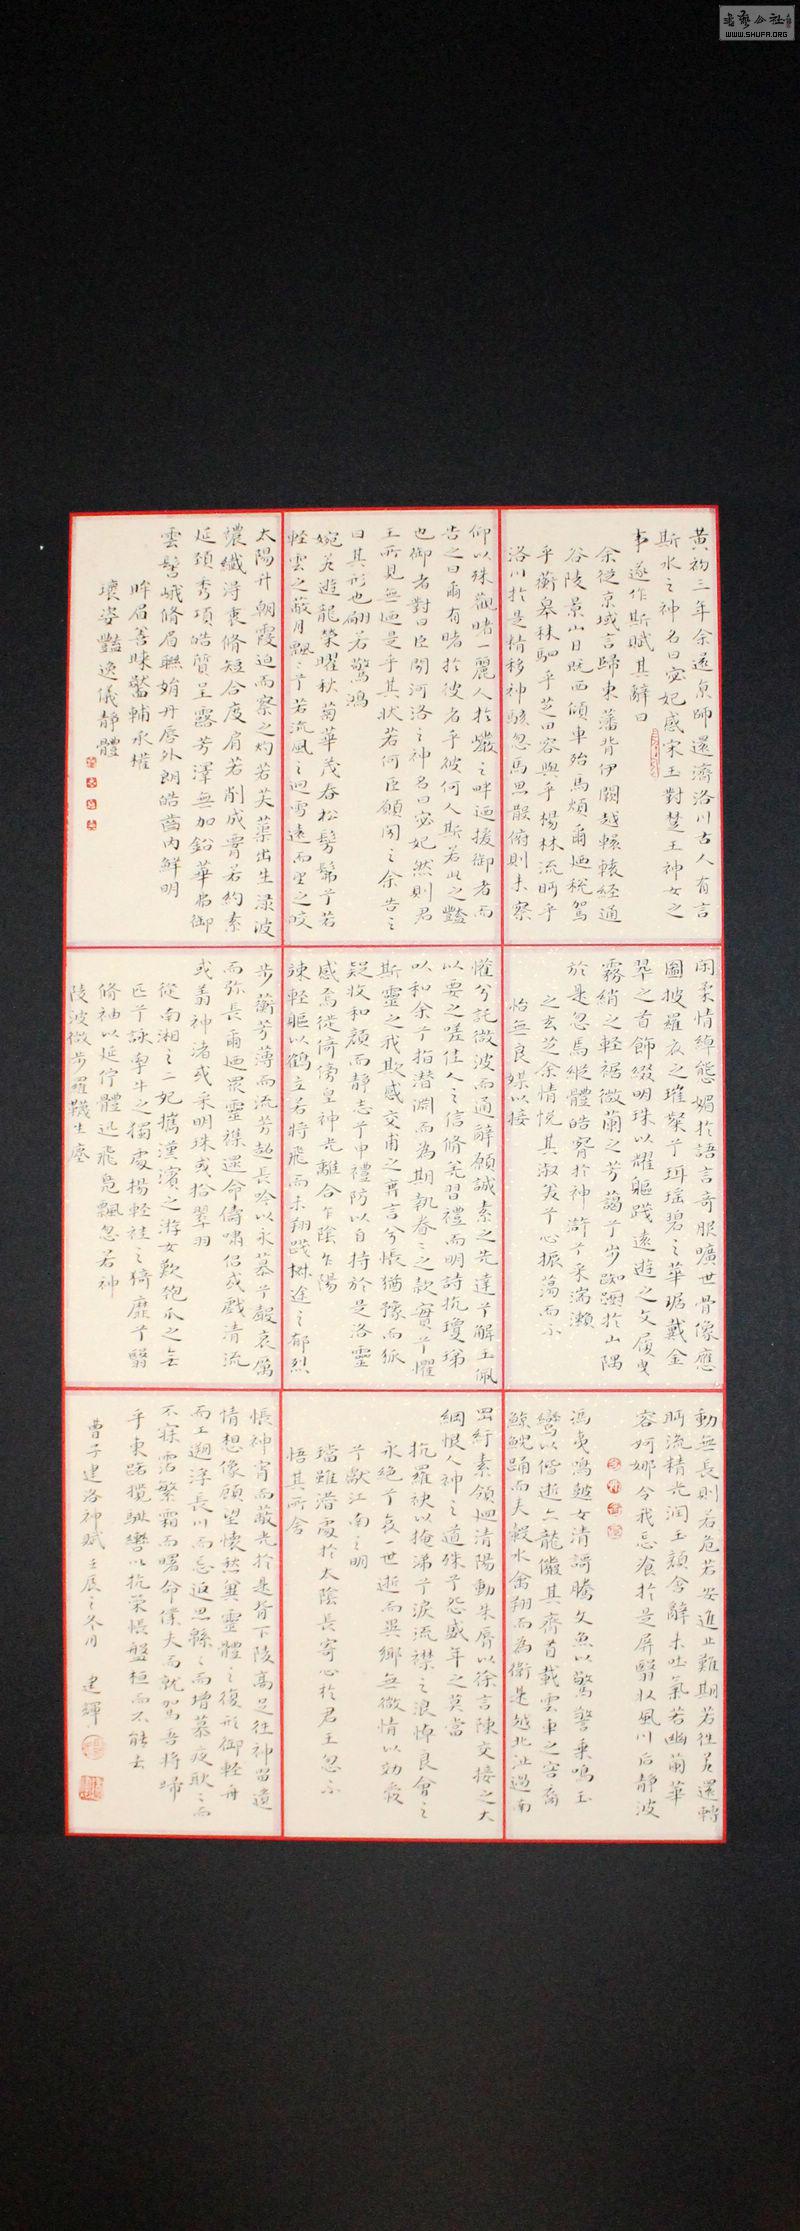 黄初三年余還京師還濟洛川古人有言
斯水之神名曰宓妃感宋玉對楚王神女之
事遂作斯賦其辭曰
余從京域言歸東藩背伊闕越轘轅經通
谷陵景山日既西傾車殆馬煩爾迺稅駕
乎蘅皋秣駟乎芝田容與乎楊林流眄乎
洛川於是精移神駭忽焉思散俯則未察
仰以殊觀睹一麗人於巖之畔迺援御者而
告之曰爾有睹於彼者乎彼何人斯若此之豔
也御者對曰臣聞河洛之神名曰宓妃然則君
王所見無迺是乎其狀若何臣願聞之余告之
曰其形也翩若驚鴻
婉若遊龍榮曜秋菊華茂春松髣髴兮若
輕雲之蔽月飄〻兮若流風之迴雪遠而望之皎
太陽升朝霞迫而察之灼若芙蕖出生淥波
襛纖得衷脩短合度肩若削成腰若約素
延頸秀項皓質呈露芳澤無加鉛華弗御
雲髻峨脩眉聯娟丹唇外朗皓齒内鮮明
眸眉善睞靨輔承權
瓌姿豔逸儀靜體
閑柔情綽態媚於語言奇服曠世骨像應
圖披羅衣之璀粲兮珥瑤碧之華琚戴金
翠之首飾綴明珠以耀軀踐遠遊之文履曳
霧綃之輕裾微蘭之芳藹兮步踟躕於山隅
於是忽焉縱體皓腕於神滸兮采湍瀨
之玄芝余情悅其淑美兮心振蕩而不
怡無良媒以接
懽兮託微波而通辭願誠素之先達兮解玉佩
以要之嗟佳人之信脩羌習禮而明詩抗瓊珶
以和余兮指潛淵而為期執眷〻之款實兮懼
斯靈之我欺感交甫之棄言兮悵猶豫而狐
疑收和顏而靜志兮申禮防以自持於是洛靈
感焉徙倚傍皇神光離合乍陰乍陽
竦輕軀以鶴立若將飛而未翔踐椒途之郁烈
步蘅芳薄而流芳超長吟以永慕兮聲哀厲
而弥長爾迺眾靈襍遝命儔嘯侶或戲清流
或翥神渚或采明珠或拾翠羽
從南湘之二妃攜漢濱之游女歎匏瓜之無
匹兮詠牽牛之獨處揚輕袿之猗靡兮翳
脩袖以延佇體迅飛鳧飄忽若神
陵波微步羅韈生塵
動無長則若危若安進止難期若往若還轉
眄流精光潤玉顏含辭未吐氣若幽蘭華
容婀娜令我忘飡於是屏翳收風川后靜波
馮夷鳴鼓女清謌騰文魚以驚警乘鳴玉
鸞以偕逝六龍儼其齊首載雲車之容裔
鯨鯢踊而夾轂水禽翔而為衛是越北沚過南
岡紆素領迴清陽動朱脣以徐言陳交接之大
綱恨人神之道殊兮怨盛年之莫當
抗羅袂以掩涕兮淚流襟之浪悼良會之
永絕兮哀一世逝而異鄉無微情以効愛
兮獻江南之明
璫雖潛處於太陰長寄心於君王忽不
悟其所舍
悵神宵而蔽光於是背下陵高足往神留遺
情想像顧望懷愁冀靈體之復形御輕舟
而上遡浮長川而忘返思緜〻而增慕夜耿〻而
不寐霑繁霜而曙命僕夫而就駕吾將歸
乎東路攬騑轡以抗策悵盤桓而不能去
曹子建洛神賦壬辰之冬月 建輝
WWW.SHUFA.ORG